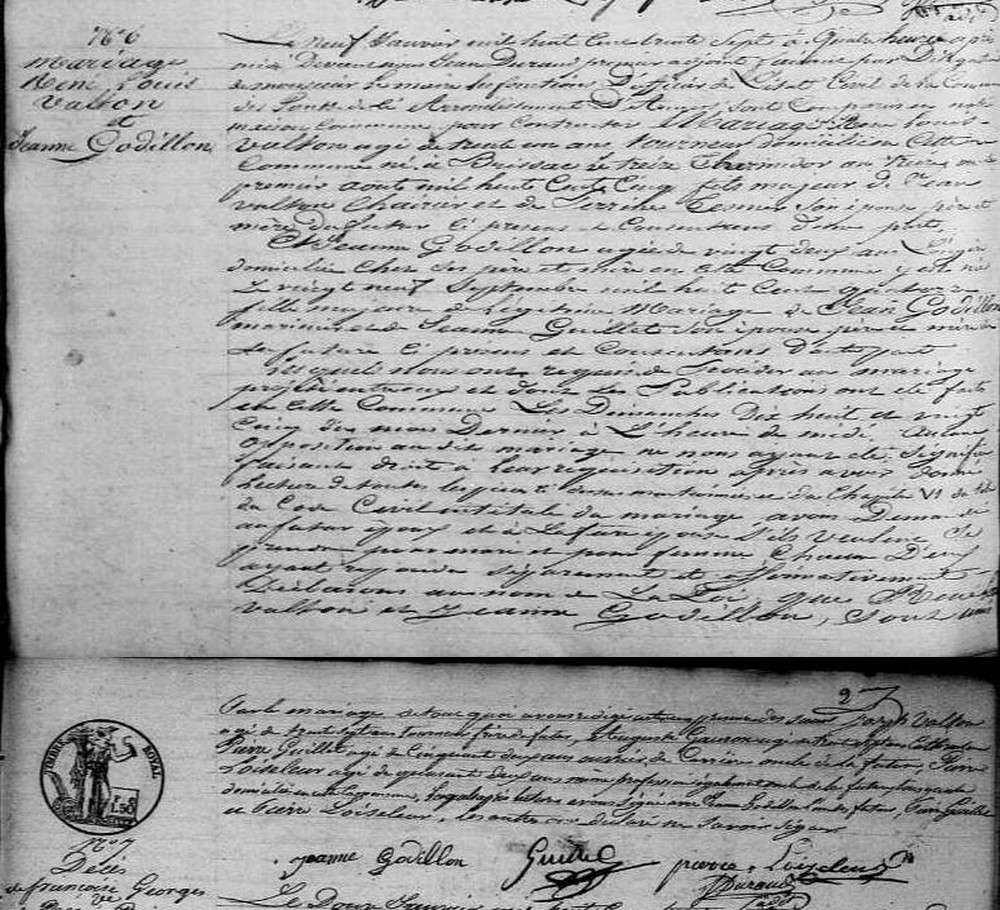 N° 6
Mariage
René Louis
Valton
et
Jeanne Godillon
Le neuf Janvier mil huit Cent trente Sept à Quatre heures après
midi Devant nous Jean Duraud premier adjoint faisant par Délégation
de monsieur le maire les fonctions D'officier de L'Etat Civil de la Commune
des Ponts de Cé Arrondissement D'Angers, sont Comparus en notre
maison Commune pour Contracter Mariage, René Louis
Valton agé de trente un ans tourneur domicilié en Cette
Commune né à Brissac le treize Thermidor an treize ou le
premier aout mil huit Cent Cinq fils majeur de Jean
Valton Chaircir et de Perrine Son épouse père et
mère du futur Ci présens et Consentans d'une part,
Et Jeanne Godillon agée de vingt deux ans
domiciliée Chez Ses père et mère en cette Commune y est née
Le vingt neuf Septembre mil huit Cent quatorze
fille majeure de Légitime Mariage de Jean Godillon
marinier et de Jeanne Guillet Son épouse père et mère de
La future Ci présens et Consentans D'autre part
Lesquels nous ont requis de Procéder au mariage
projeté entr'eux et dont les Publications ont été faites
en Cette Commune Les Dimanches Dix huit et vingt
Cinq du mois Dernier à L'heure de midi. Aucune
Opposition au dit mariage ne nous ayant été Signifiée
faisant droit à leur réquisition après avoir donné
Lecture de toutes les pièces ci dessus mentionnées et du Chapitre VI du
du Code Civil intitulé du mariage, avons Demandé
au futur époux et à La future épouse S'ils veulent Se
prendre pour mari et pour femme Chacun D'eux
ayant répondu séparément et affirmativement
Déclarons au nom de La Loi, que René
Valton et Jeanne Godillon, Sont unis
27
Par le mariage de tout quoi avons rédigé acte en présence des sieurs Joseph Valton
agé de trente sept ans tourneur frère du futur, Auguste agé de trente
Pierre Guillet agé de Cinquante deux ans ouvrier de Carrière oncle de la future, Pierre
Loiseleur agé de quarante deux ans même profession également oncle de la future
domiciliés en cette Commune, Lesquels après lecture avons signé avec Jeanne Godillon future, Pierre Guillet
et Pierre Loiseleur, les autres ont déclaré ne Savoir Signer
Jeanne Godillon
Guillet
pierre Loiseleur
J Duraud
adt
TIMBRE ROYAL
N° 7
Décès
de françoise Georges
ve
Le Douze Janvier mil huit Cent